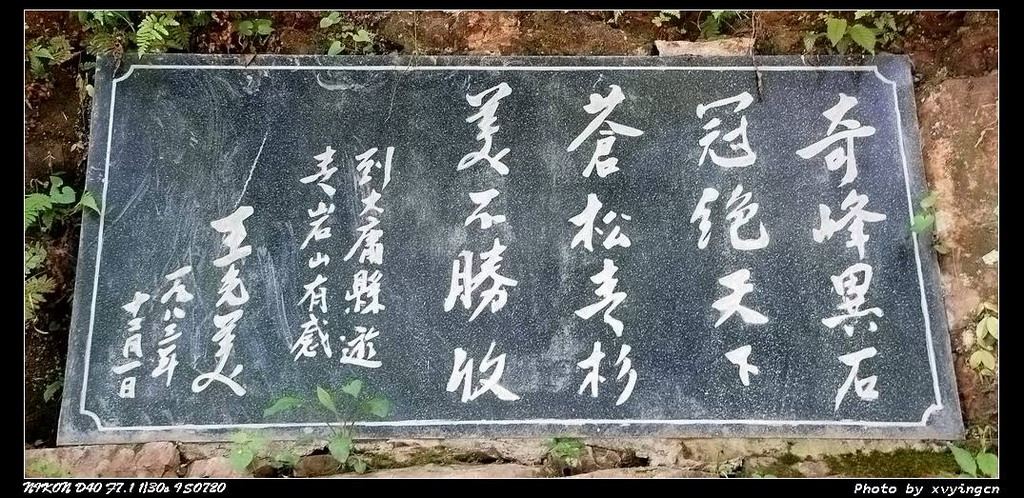 奇峰異石
冠絶天下
蒼松青杉
美不勝收
到大庸縣遊
青岩山有感
王光美
一九八三年
十二月一日
NIKON D40 F7.1 1/30s ISO720
Photo by xvyingcn